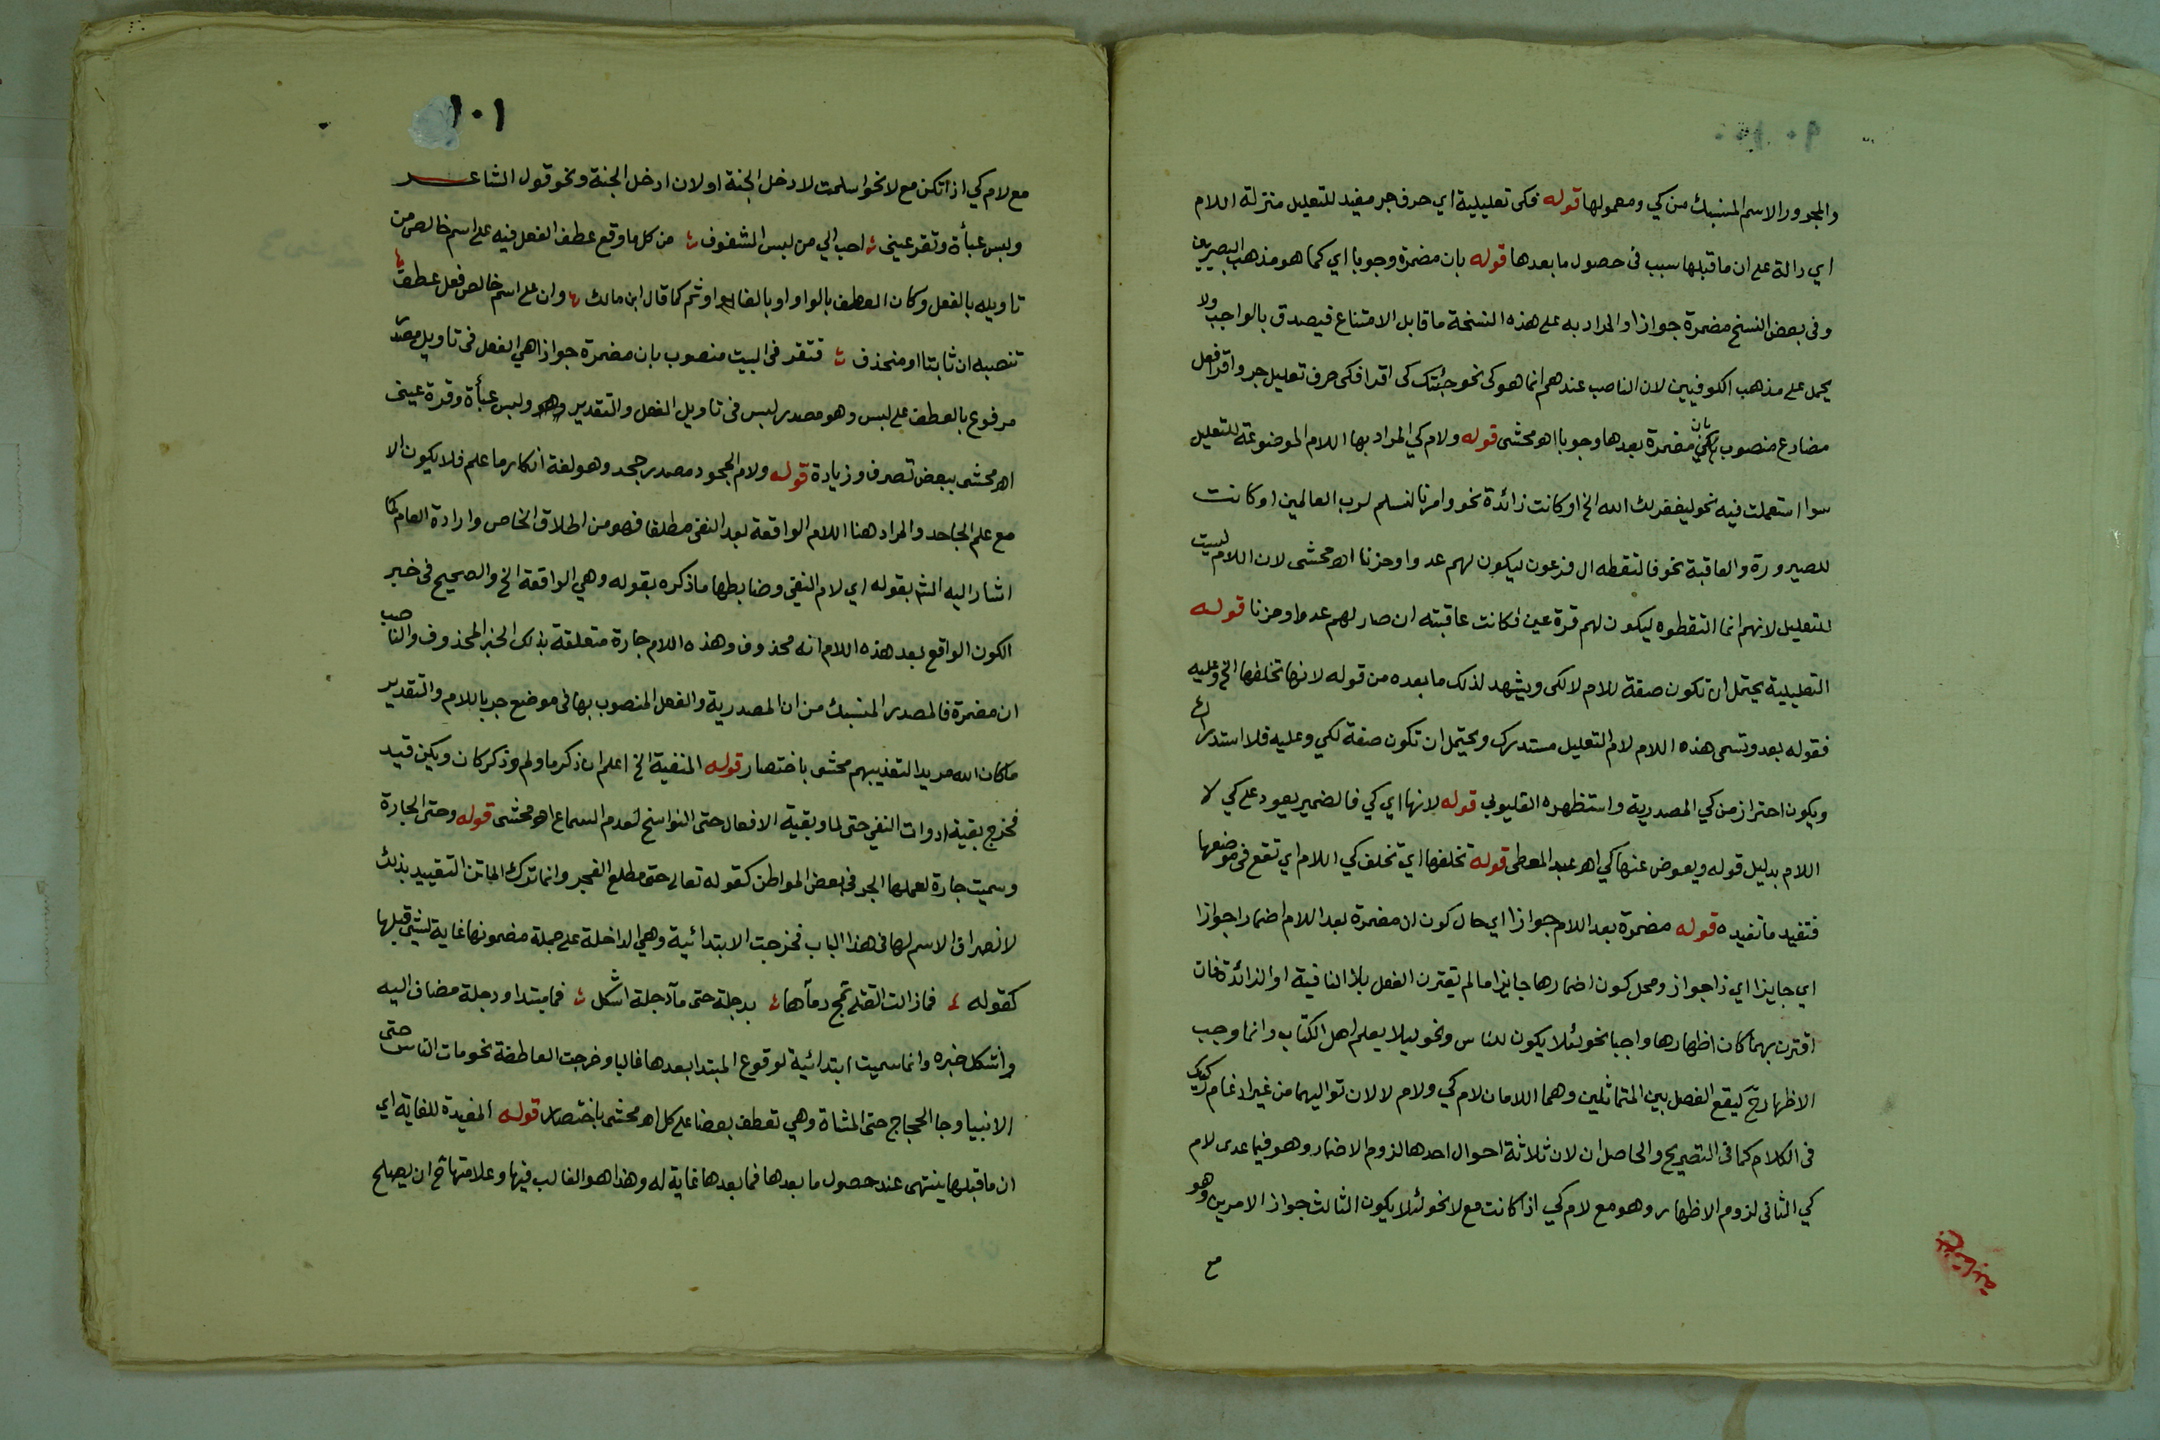 والمجرور الاسم المنسبك من كي ومعمولها قوله فكى تعليلية اي حرف جر مفيد للتعليل منزلة اللام
اي دالة على ان ما قبلها سبب فى حصول ما بعدها قوله بان مضمرة وجوبا اي كما هو مذهب البصريين
وفى بعض النسخ مضمرة جوازا والمراد به على هذه النسخة ما قابل الامتناع فيصدق بالواجب ولا
يحمل على مذهب الكوفيين لان الناصب عندهم انما هو كى نحو جئتك كى اقرا فكى حرف تعليل جر واقرا فعل
مضارع منصوب بان مضمرة بعدها وجوبا اهو محشى قوله ولام كي المراد بها اللام الموضوعة للتعليل
سوا استعملت فيه نحو ليغفر لك الله الخ او كانت زائدة نحو وامرنا لنسلم لرب العالمين او كانت
للصيرورة والعاقبة نحو فالتقطه ال فرعون ليكون لهم عدوا وحزنا اهو محشى لان اللام ليست
للتعليل لانهم انما التقطوه ليكون لهم قرة عين فكانت عاقبته ان صار لهم عدوا وحزنا قوله
التعليلية يحتمل ان تكون صفة للام لا لكى ويشهد لذلك ما بعده من قوله لانها تخلفها الخ وعليه
فقوله بعد وتسمى هذه اللام لام التعليل مستدرك ويحتمل ان تكون صفة لكي وعليه فلا استدراك
ويكون احتراز من كي المصدرية واستظهره القليوبي قوله لانها اي كي فالضمير يعود على كي لا
اللام بدليل قوله ويعوض عنها كي اهو عبد المعطى قوله تخلفها اي تخلف كي اللام اي تقع فى موضعها
فتفيد ما تفيده قوله مضمرة بعد اللام جوازا اي حال كون ان مضمرة بعد اللام اضمارا جوازا
اي جايزا اي ذا جواز ومحل كون اضمارها جايزا ما لم يقترن الفعل بلا النافية او الزائدة فان
اقترن بهما كان اظهارها واجبا نحو لئلا يكون للناس ونحو ليلا يعلم اهل الكتاب وانما وجب
الاظهار ح ليقع الفصل بين المتماثلين وهما اللامان لام كي ولام لا لان تواليهما من غير ادغام ركيك
فى الكلام كما فى التصريح والحاصل ان لان ثلاثة احوال احدها لزوم الاضمار وهو فيما عدى لام
كي الثانى لزوم الاظهار وهو مع لام كي اذا كانت مع لا نحو لئلا يكون الثالث جواز الامرين وهو
مع
١٠١
مع لام كي اذا تكن مع لا نحو اسلمت لادخل الجنة او لان ادخل الجنة ونحو قول الشاعر
ولبس عبأة وتقر عينى احب الي من لبس الشفوف من كل ما وقع عطف الفعل فيه على اسم خالص من
تاويله بالفعل وكان العطف بالواو او بالفا او ثم كما قال ابن مالك وان على اسم خالص فعل عطف
تنصبه ان ثابتا او منحذف فتقر فى البيت منصوب بان مضمرة جوازا هي الفعل فى تاويل مصدر
مرفوع بالعطف على لبس وهو مصدر ليس فى تاويل الفعل والتقدير ولبس عبأة وقرة عينى
اهو محشى ببعض تصرف وزيادة قوله ولام الجحود مصدر جحد وهو لغة انكار ما علم فلا يكون الا
مع علم الجاحد والمراد هنا اللام الواقعة بعد النفى مطلقا فهو من اطلاق الخاص وارادة العام كما
اشار اليه الش بقوله اي لام النفي وضابطها ما ذكره بقوله وهي الواقعة الخ والصحيح فى خبر
الكون الواقع بعد هذه اللام انه محذوف وهذه اللام جارة متعلقة بذلك الخبر المحذوف والناصب
ان مضمرة فالمصدر المنسبك من ان المصدرية والفعل المنصوب بها فى موضع جر باللام والتقدير
ما كان الله مريدا لتعذيبهم محشى باختصار قوله المنفية الخ اعلم ان ذكر ما ولم وذكر كان ويكن قيد
فخرج بقية ادوات النفي حتى لما وبقية الافعال حتى النواسخ لعدم السماع اهو محشى قوله وحتى الجارة
وسميت جارة لعملها الجر فى بعض المواطن كقوله تعالى حتى مطلع الفجر وانما ترك الماتن التقييد بذلك
لانصراف الاسم لها فى هذا الباب فخرجت الابتدائية وهي الداخلة على جملة مضمونها غاية لشي قبلها
كقوله فما زالت القتلى تمج دمآها بدجلة حتى مآ دجلة اشكل فما مبتدا ودجلة مضاف اليه
واشكل خبره وانما سميت ابتدائية لوقوع المبتدا بعدها غالبا وخرجت العاطفة نحو مات الناس حتى
الانبيا وجا الحجاج حتى المشاة وهي تعطف بعضا على كل اهو محشى باختصار قوله المفيدة للغاية اي
ان ما قبلها ينتهى عند حصول ما بعدها فما بعدها غاية له وهذا هو الغالب فيها وعلامتها ح ان يصلح